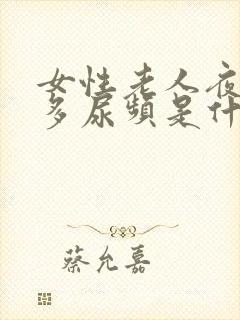 女性老人夜
多尿频是什
蔡允嘉